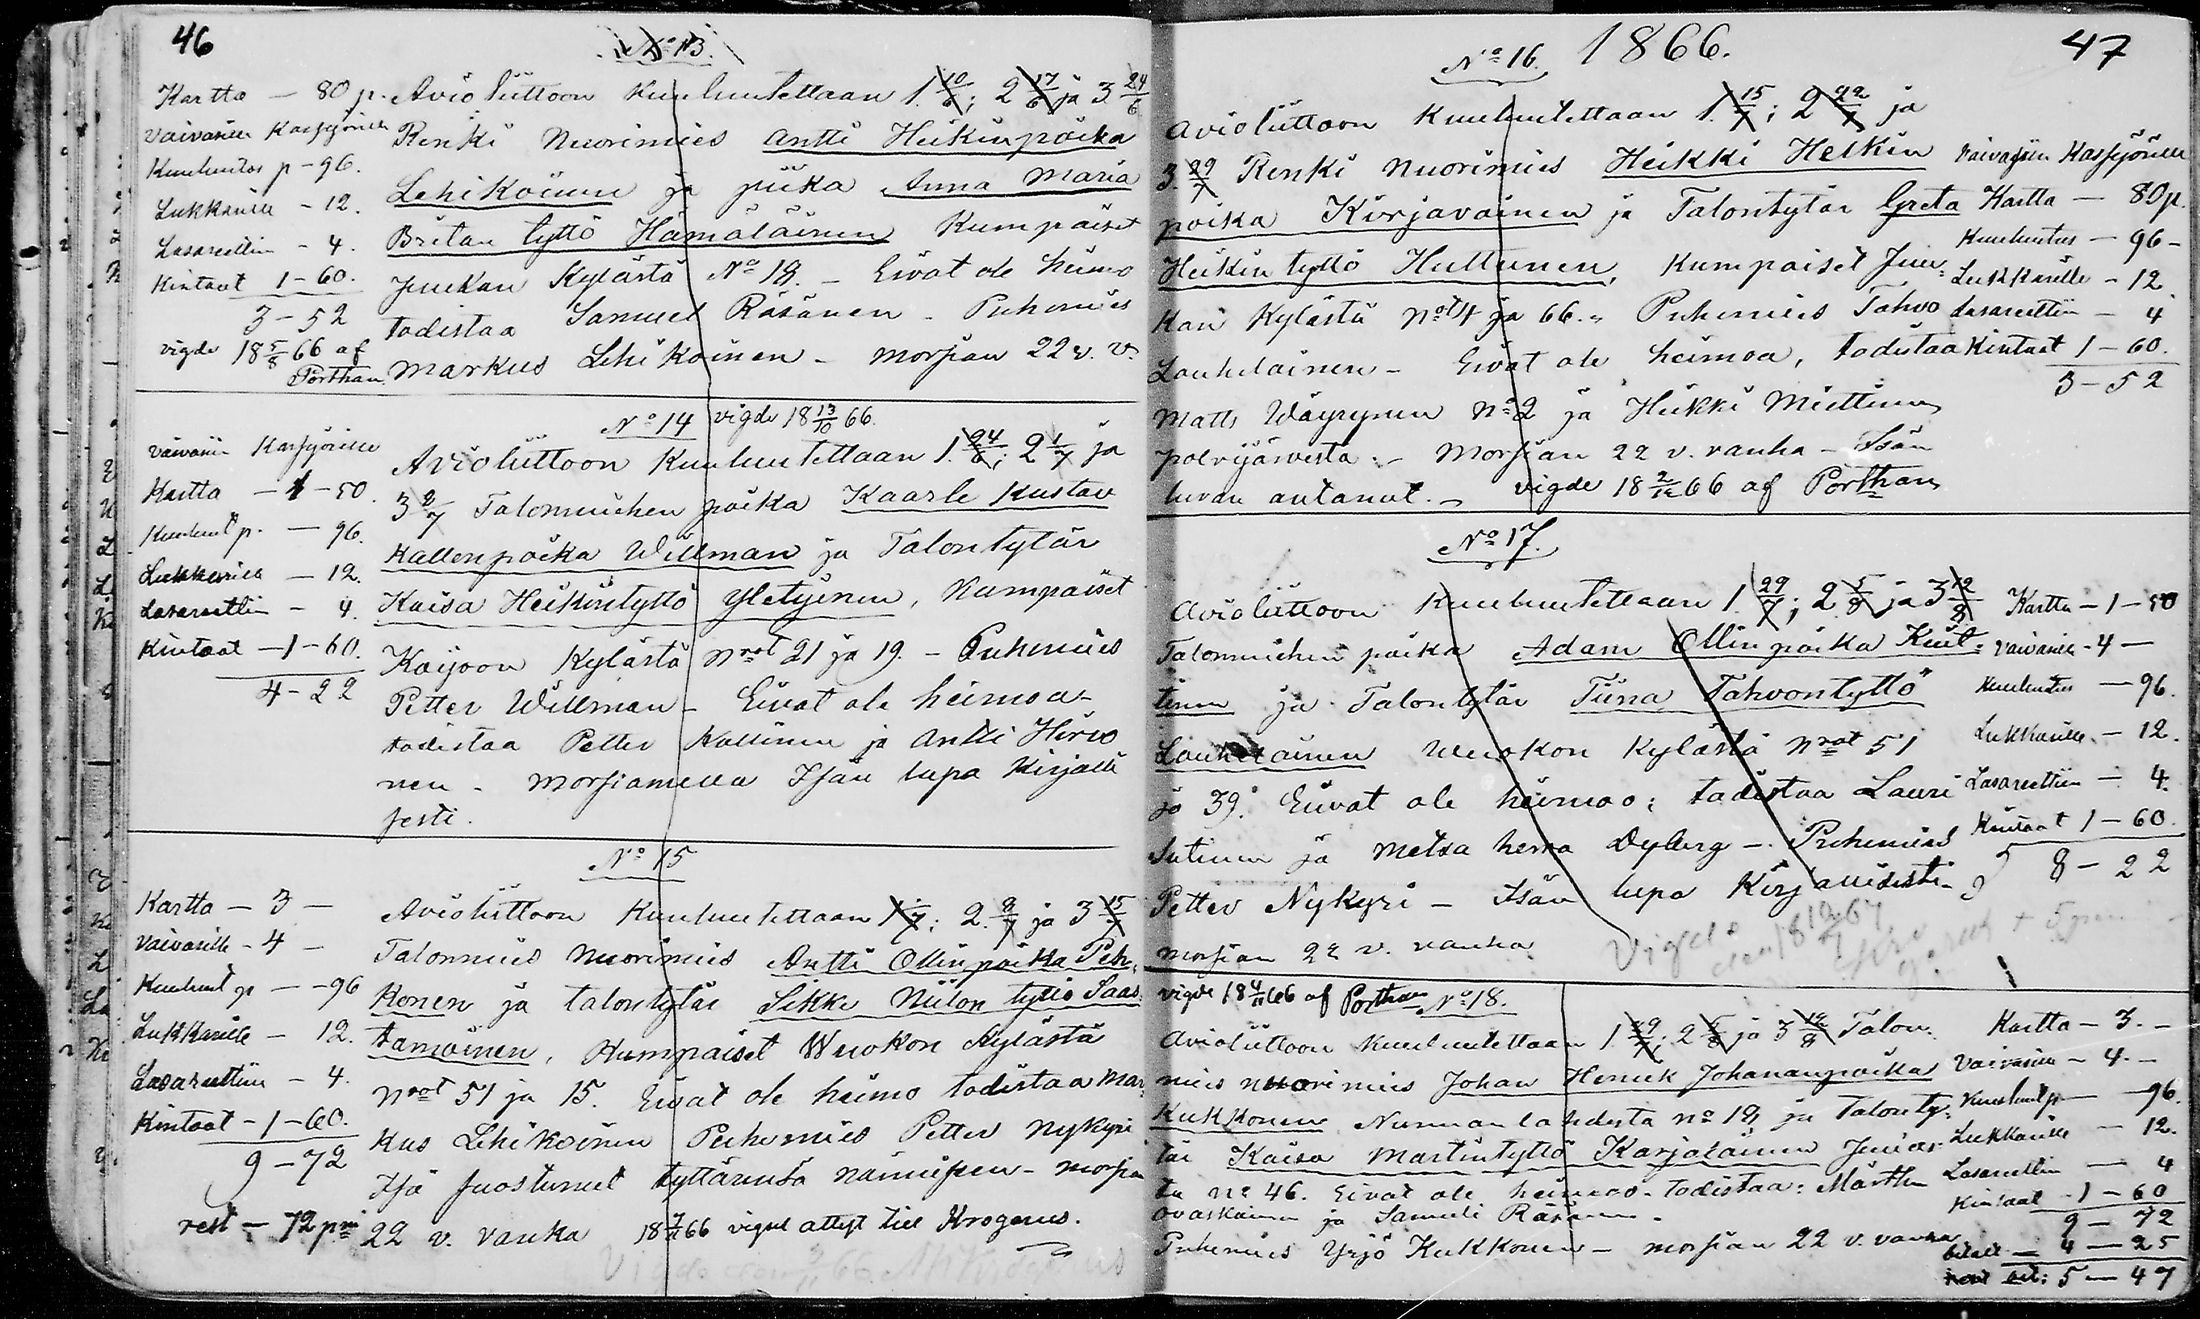 46
No 13.
Kartta — 80 p.
Vaivasille Kassjörille
Kuulutus p - 96.
Lukkarille - 12.
Lasarettiin - 4.
Kintaat 1 - 60.
3 - 52
vigde 18 5/8 66 af
Porthan
Avioliittoon kuulutettaan 1. 10/6; 2 17/6 ja 3 24/6
Renki Nuorimies Antti Heikinpoika
Lehikoinen ja piika Anna Maria
Britan tyttö Hämäläinen Kumpaiset
Juukan Kylästä No 18. - Eivät ole heimo
todistaa Samuel Räsänen - Puhemies
Markus Lehikoinen - morsian 22 v. v.
No 14 vigde 18 13/10 66.
Vaivasiin Kassjörille
Kartta - 1 - 50.
Kuulut p. — 96.
Lukkarille — 12.
Lasarettiin - 4.
Kintaat - 1 - 60.
4 - 22
Avioliittoon Kuulutettaan 1. 24/6; 2 1/7 ja
3 8/7 Talonmiehen poika Kaarle Kustav
Kallenpoika Willman ja Talontytär
Kaisa Heikintyttö Yletyinen, Kumpaiset
Kajoon Kylästä Nrot 21 ja 19. - Puhemies
Petter Willman - Eivät ole heimoa -
todistaa Petter Kallinen ja Antti Hirvo
nen - Morsiamella Isän lupa Kirjalli
sesti.
No 15
Kartta - 3 -
Vaivasille - 4 -
Kuulut p - - 96
Lukkarille - 12.
Lasarettiin - 4.
Kintaat - 1 - 60.
9 - 72
rest - 72 pni
Avioliittoon Kuulutettaan 1 1/7; 2. 8/7 ja 3 15/7
Talonmies Nuorimies Antti Ollinpoika Peh,
konen ja talontytär Sikke Niilon tyttö Saas,
tamoinen, Kumpaiset Wuokon Kylästä
Nrot 51 ja 15. Eivät ole heimo todistaa Mar,
kus Lehikoinen Puhemies Petter Nykyri
Isä suostunut tyttärensä naimisen - morsia
22 v. vanha 18 7/11 66 vigsel attest till Krogerus.
1866.
47
No 16.
Avioliittoon Kuulutettaan 1. 15/7; 2 22/7 ja
3. 29/7 Renki Nuorimies Heikki Heikin
poika Kirjavainen ja Talontytär Greta
Heikin tyttö Huttunen, Kumpaiset Juu,
kan Kylästä Not 4 ja 66. - Puhemies Tahvo
Lauhelainen - Eivät ole heimoa, todistaa
Matts Wäyrynen No 2 ja Heikki Miettinen
polvijärvesta. - Morsian 22 v. vanha - Isän
luvan antanut. - vigde 18 2/12 66 af Porthan
Vaivasiin Kassjörille
Kartta — 80 p.
Kuulutus — 96 -
Lukkarille - 12
Lasarettiin - 4
Kintaat 1 - 60.
3 - 52
No 17.
Avioliittoon Kuulutettaan 1. 29/7; 2 5/8 ja 3 12/8
Talonmiehen poika Adam Ollinpoika Kiut,
tinen ja Talontytär Tiina Tahvontyttö
Lauhelainen Wuokon Kylästä Nrot 51
ja 39. Eivät ole heimoo: todistaa Lauri
Sutinen ja Metsa herra Dyberg - Puhemies
Petter Nykyri - Isän lupa Kirjallisesti -
morsian 22 v. vanha
Kartta - 1 - 50
Vaivasille - 4 -
Kuulutus — 96.
Lukkarille - 12.
Lasarettiin - 4.
Kintaat 1 - 60.
8 - 22
vigde 18 4/11 66 af Porthan No 18.
Avioliittoon Kuulutettaan 1 29/7; 2 5/8 ja 3 12/8 Talon
mies nuorimies Johan Henrik Johananpoika
Kukkonen Nunnanlahdesta No 18 ja Talonty,
tär Kaisa Martintyttö Karjalainen Juuas
ta No 46. Eivät ole heimoo - todistaa: Martti
Ovaskainen ja Samuli Räsänen -
Puhemies Yrjö Kukkonen - morsian 22 v. vanha
Kartta - 3. -
Vaivasiin - 4. -
Kuulut p — 96.
Lukkarille - 12.
Lasarettiin — 4
Kintaat - 1 - 60
9 - 72
betalt — 4 — 25
rest 5 — 47